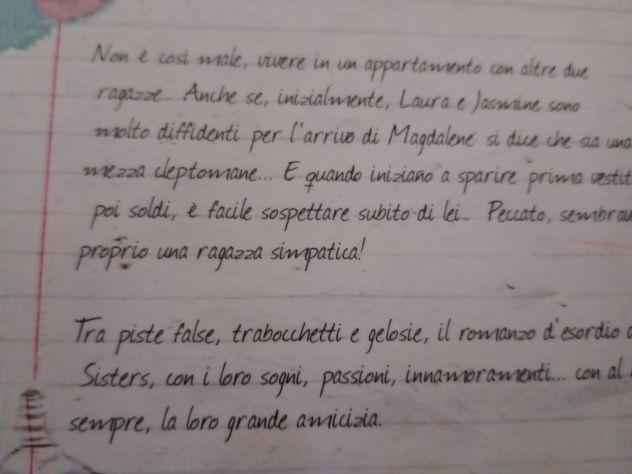 Non è così male, vivere in un appartamento con altre due
ragazze... Anche se, inizialmente, Laura e Jasmine sono
molto diffidenti per l'arrivo di Magdalene si dice che sia una
mezza cleptomane... E quando iniziano a sparire prima vestit
poi soldi, è facile sospettare subito di lei... Peccato, sembrav
proprio una ragazza simpatica!
Tra piste false, trabocchetti e gelosie, il romanzo d'esordio
Sisters, con i loro sogni, passioni, innamoramenti... con al
sempre, la loro grande amicizia.